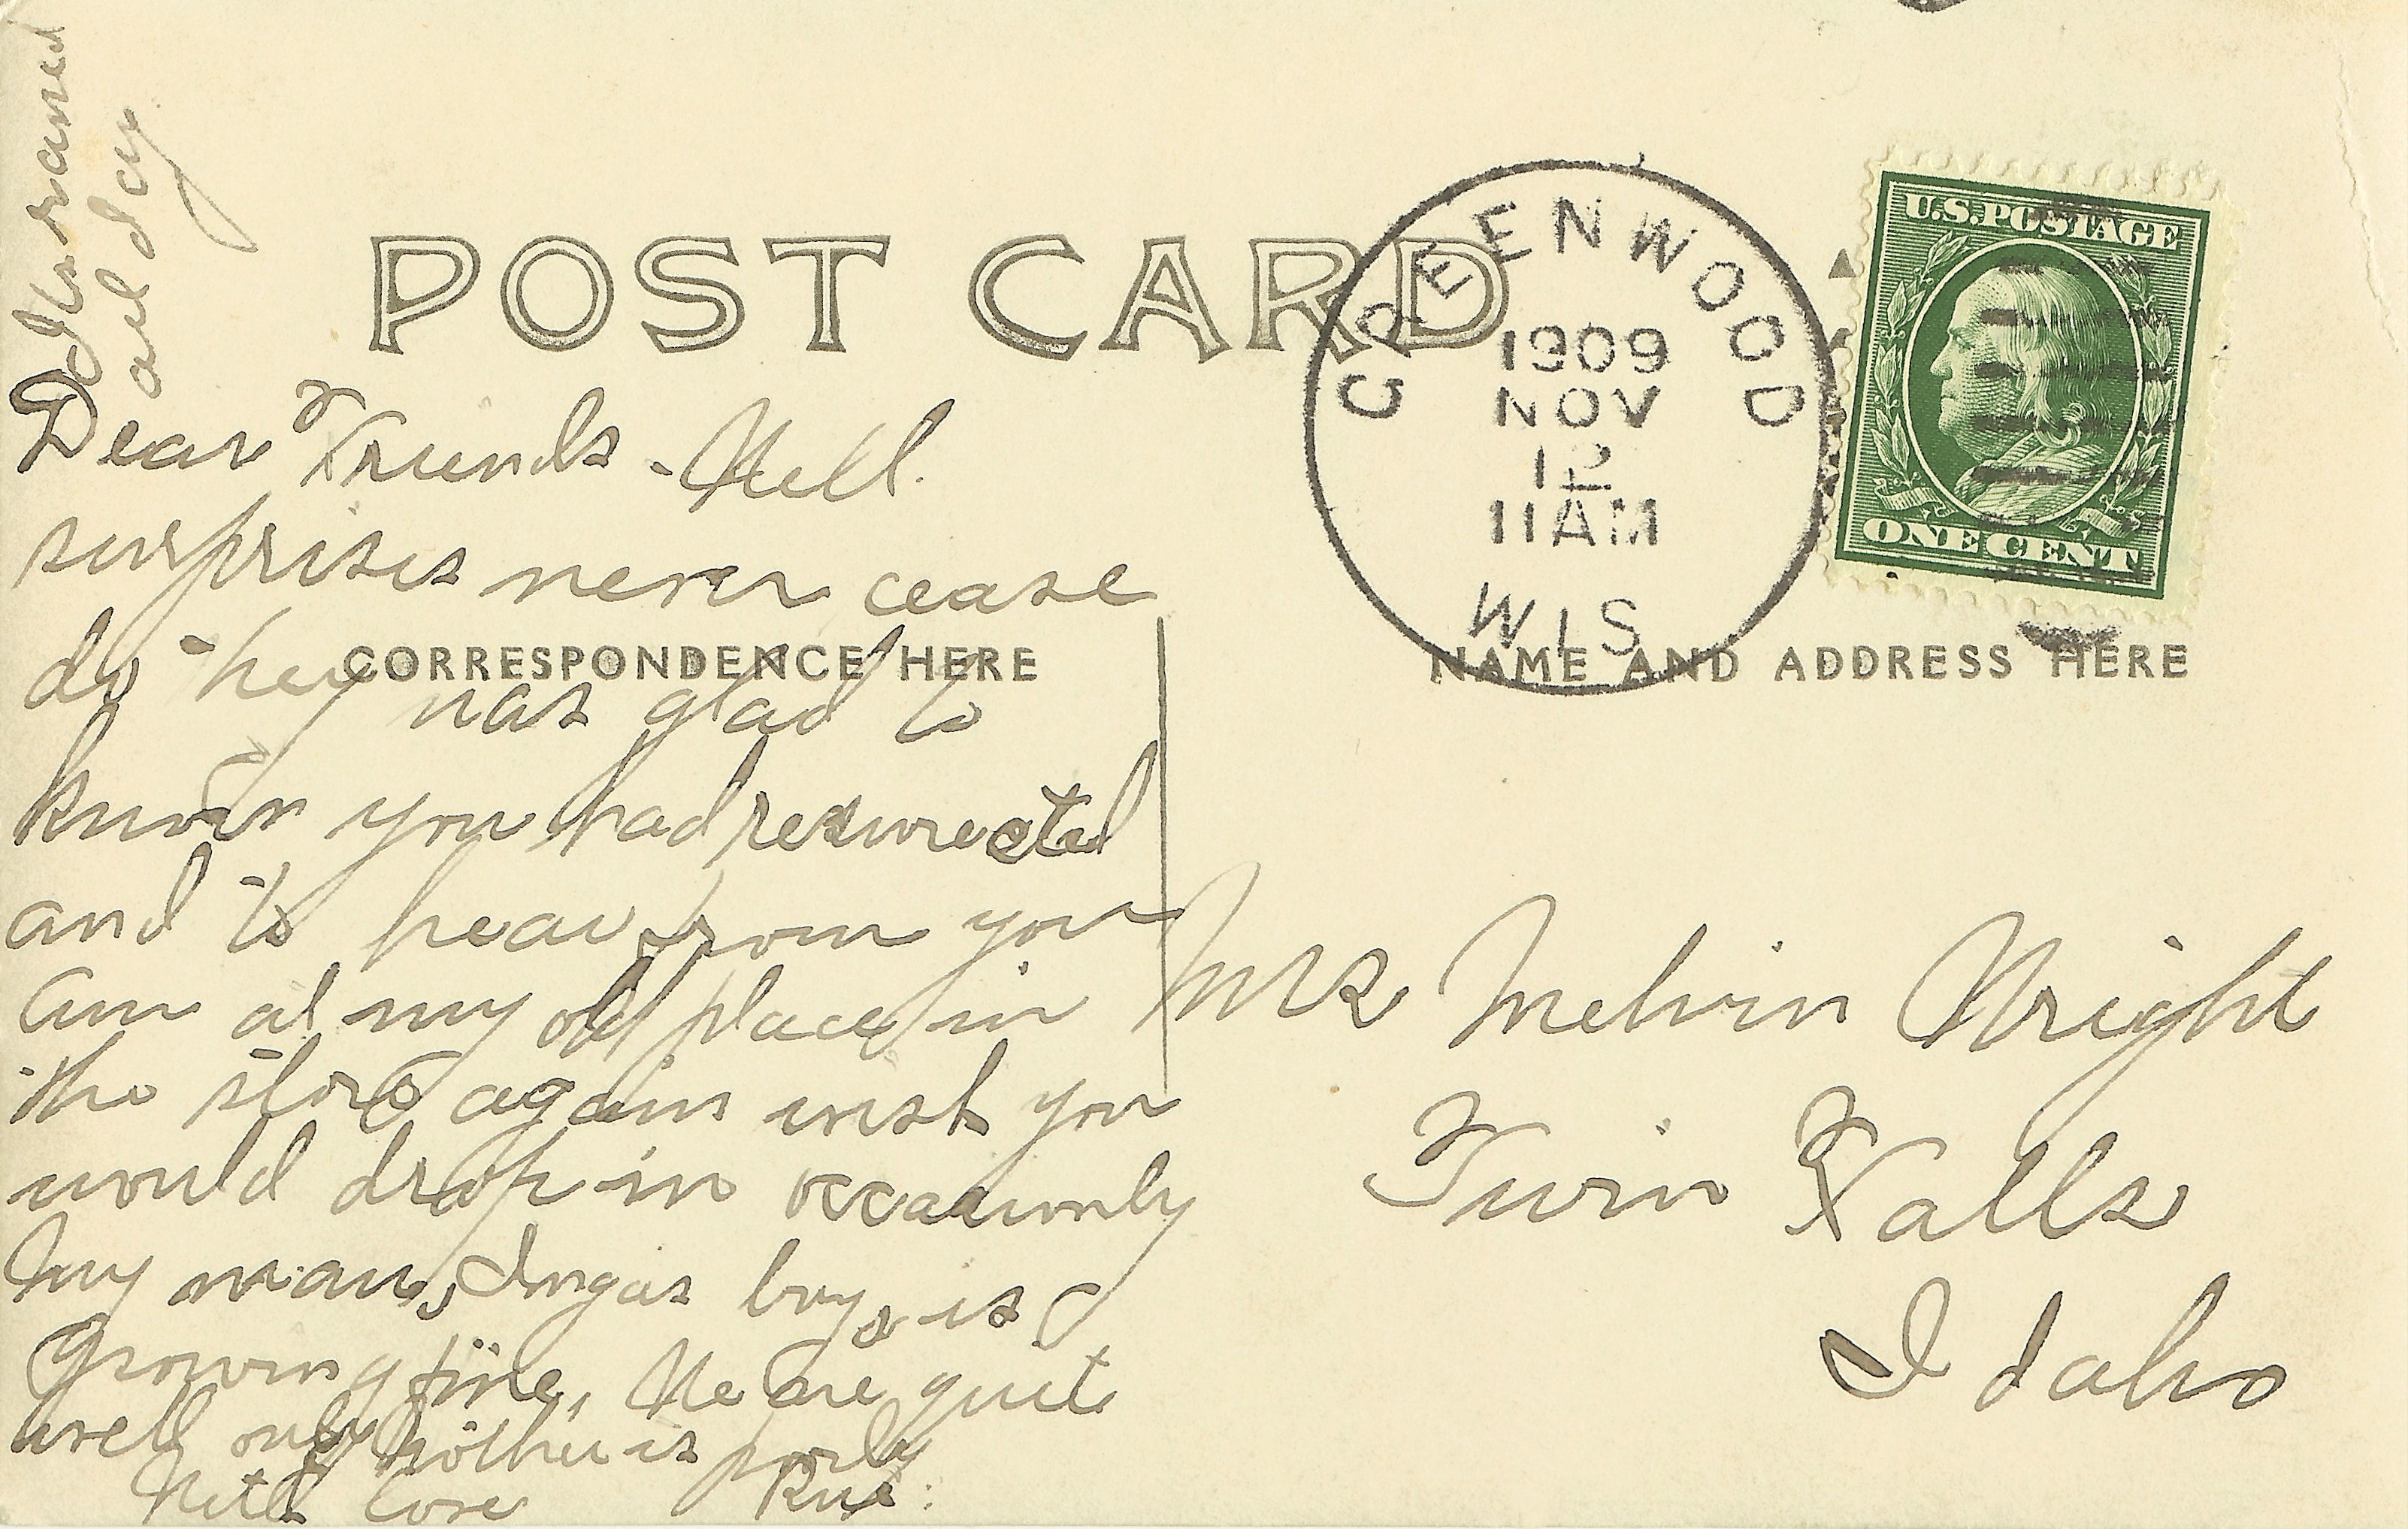 It rained
all day
POST CARD
GREENWOOD
1909
NOV
12
11AM
WIS
U.S.POSTAGE
ONE CENT
CORRESPONDENCE HERE
NAME AND ADDRESS HERE
Dear Friends - Well.
surprises never cease
do they was glad to
know you had resurrected
and to hear from you
Am at my old place in
the store again wish you
would drop in
My man, Ingas boy, is
growing fine, We are quite
well only Mother is poorly
With Love
Mrs Melvin Wright
Twin Falls
Idaho